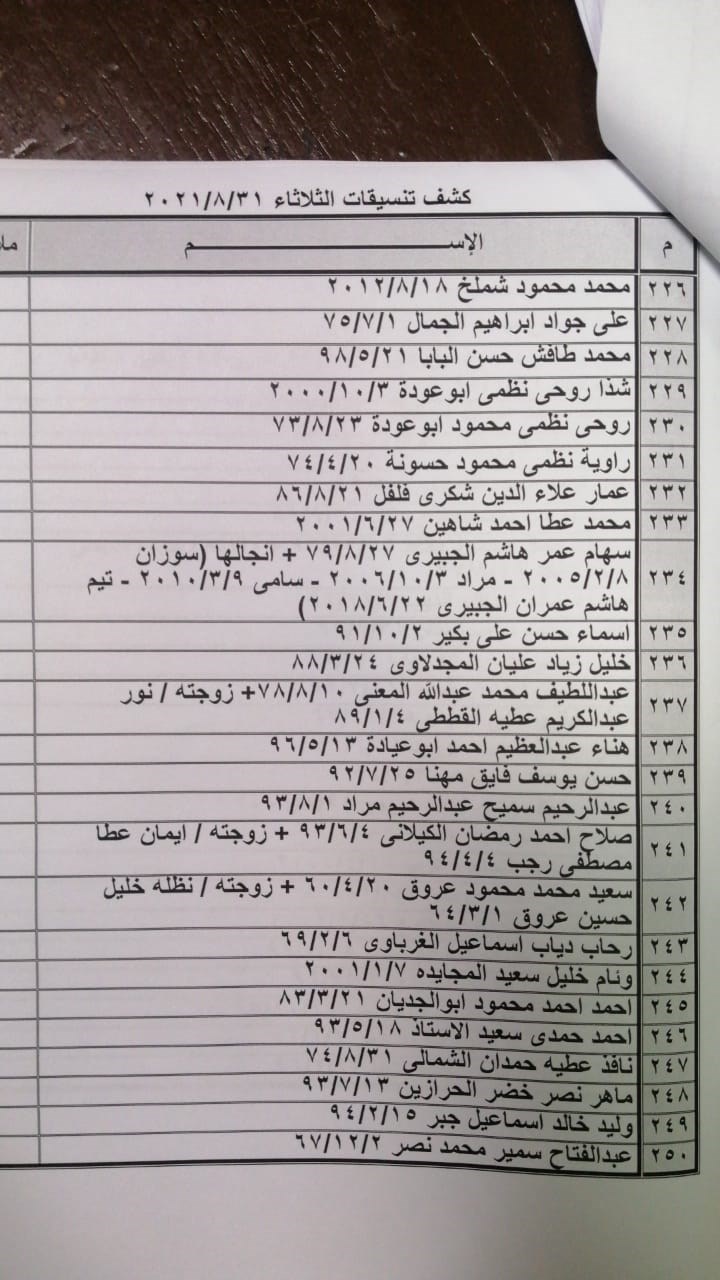 كشف تنسيقات الثلاثاء ٢٠٢١/٨/٣١
م الإســـــــــم ما
٢٢٦ محمد محمود شملخ ٢٠١٢/٨/١٨
٢٢٧ على جواد ابراهيم الجمال ٧٥/٧/١
٢٢٨ محمد طافش حسن البابا ٩٨/٥/٢١
٢٢٩ شذا روحى نظمى ابوعودة ٢٠٠٠/١٠/٣
٢٣٠ روحى نظمى محمود ابوعودة ٧٣/٨/٢٣
٢٣١ راوية نظمى محمود حسونة ٧٤/٤/٢٠
٢٣٢ عمار علاء الدين شكرى فلفل ٨٦/٨/٢١
٢٣٣ محمد عطا احمد شاهين ٢٠٠١/٦/٢٧
٢٣٤ سهام عمر هاشم الجبيرى ٧٩/٨/٢٧ + انجالها (سوزان
٢٠٠٥/٢/٨ - مراد ٢٠٠٦/١٠/٣ - سامى ٢٠١٠/٣/٩ - تيم
هاشم عمران الجبيرى ٢٠١٨/٦/٢٢)
٢٣٥ اسماء حسن على بكير ٩١/١٠/٢
٢٣٦ خليل زياد عليان المجدلاوى ٨٨/٣/٢٤
٢٣٧ عبداللطيف محمد عبدالله المعنى ٧٨/٨/١٠+ زوجته / نور
عبدالكريم عطيه القططى ٨٩/١/٤
٢٣٨ هناء عبدالعظيم احمد ابوعيادة ٩٦/٥/١٣
٢٣٩ حسن يوسف فايق مهنا ٩٢/٧/٢٥
٢٤٠ عبدالرحيم سميح عبدالرحيم مراد ٩٣/٨/١
٢٤١ صلاح احمد رمضان الكيلانى ٩٣/٦/٤ + زوجته / ايمان عطا
مصطفى رجب ٩٤/٤/٤
٢٤٢ سعيد محمد محمود عروق ٦٠/٤/٢٠ + زوجته / نظله خليل
حسين عروق ٦٤/٣/١
٢٤٣ رحاب دياب اسماعيل الغرباوى ٦٩/٢/٦
٢٤٤ وئام خليل سعيد المجايده ٢٠٠١/١/٧
٢٤٥ احمد احمد محمود ابوالجديان ٨٣/٣/٢١
٢٤٦ احمد حمدى سعيد الاستاذ ٩٣/٥/١٨
٢٤٧ نافذ عطيه حمدان الشمالى ٧٤/٨/٣١
٢٤٨ ماهر نصر خضر الحرازين ٩٣/٧/١٣
٢٤٩ وليد خالد اسماعيل جبر ٩٤/٢/١٥
٢٥٠ عبدالفتاح سمير محمد نصر ٦٧/١٢/٢